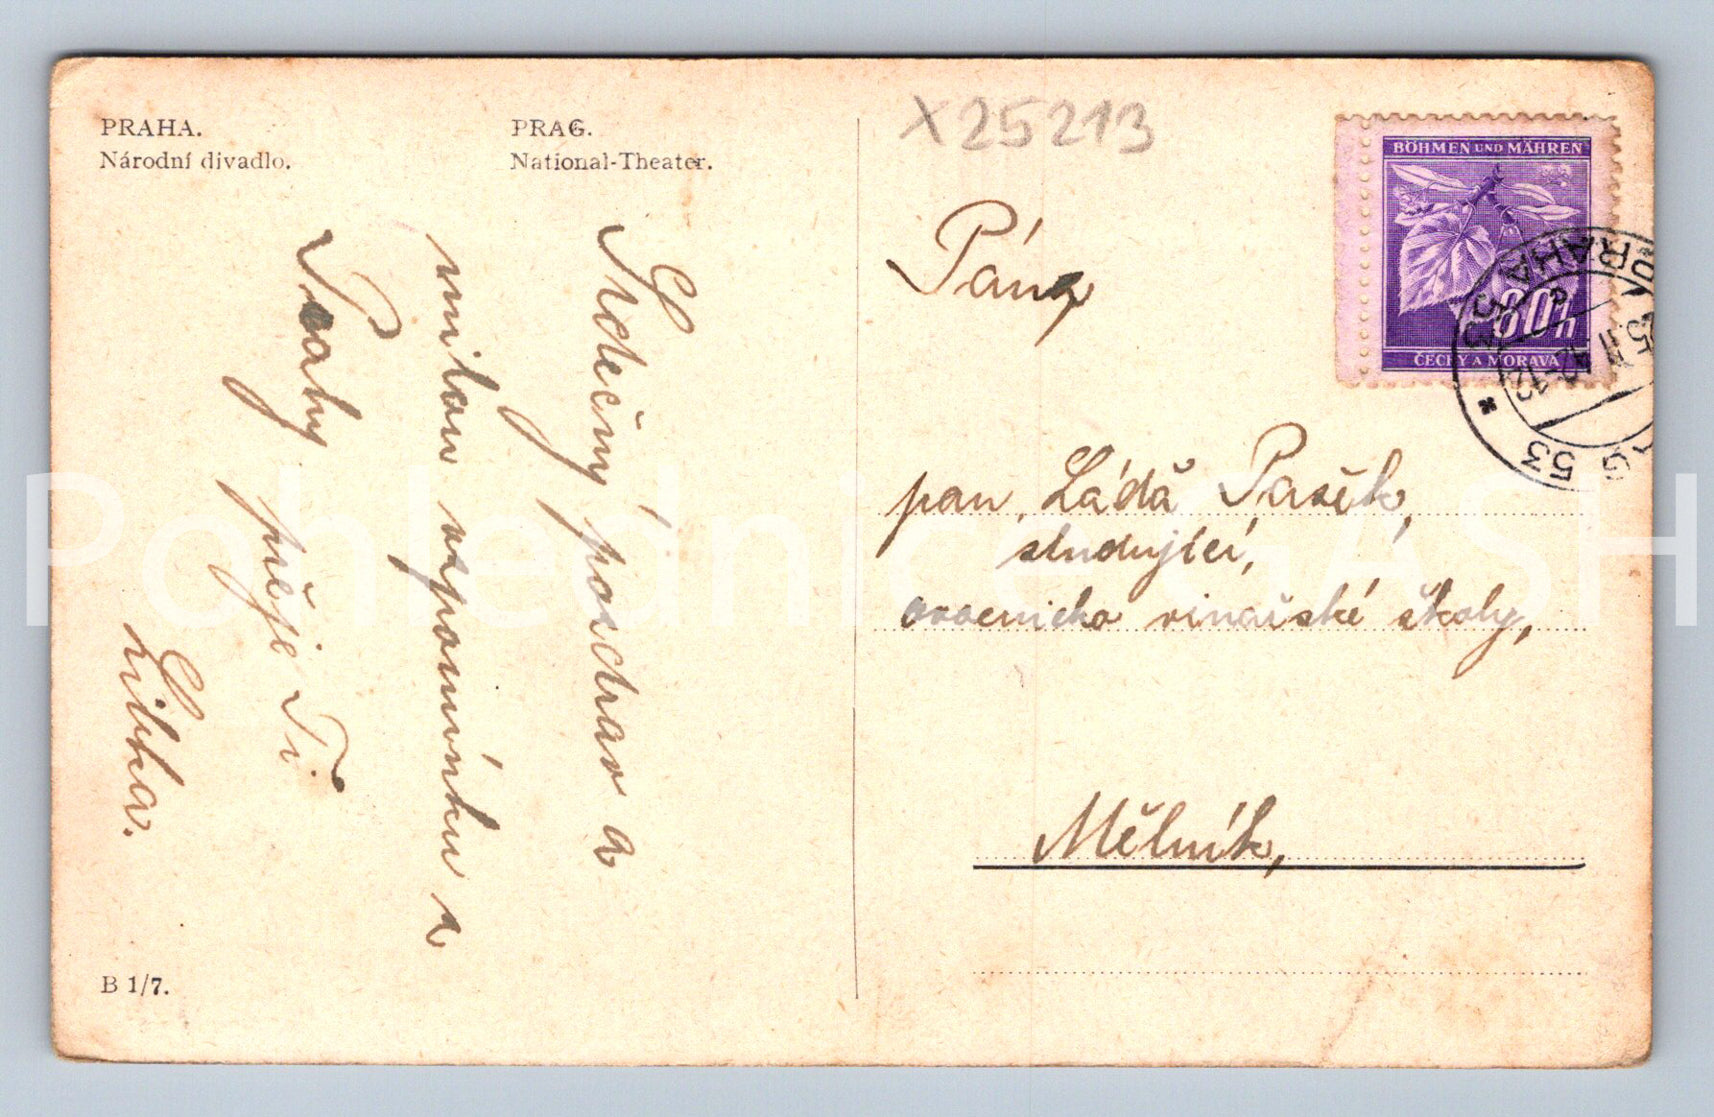 PRAHA.
Národní divadlo.
PRAG.
National-Theater.
X25213
BÖHMEN UND MÄHREN
60h
ČECHY A MORAVA
PRAHA 53
PRAG 53
Srdečný pozdrav a
milou vzpomínku z
Prahy přeje Ti
Liška.
Pána
pan Láďa Pašek,
studující,
ovocnicko vinařské školy,
Mělník,
B 1/7.
Pohlednice GASH